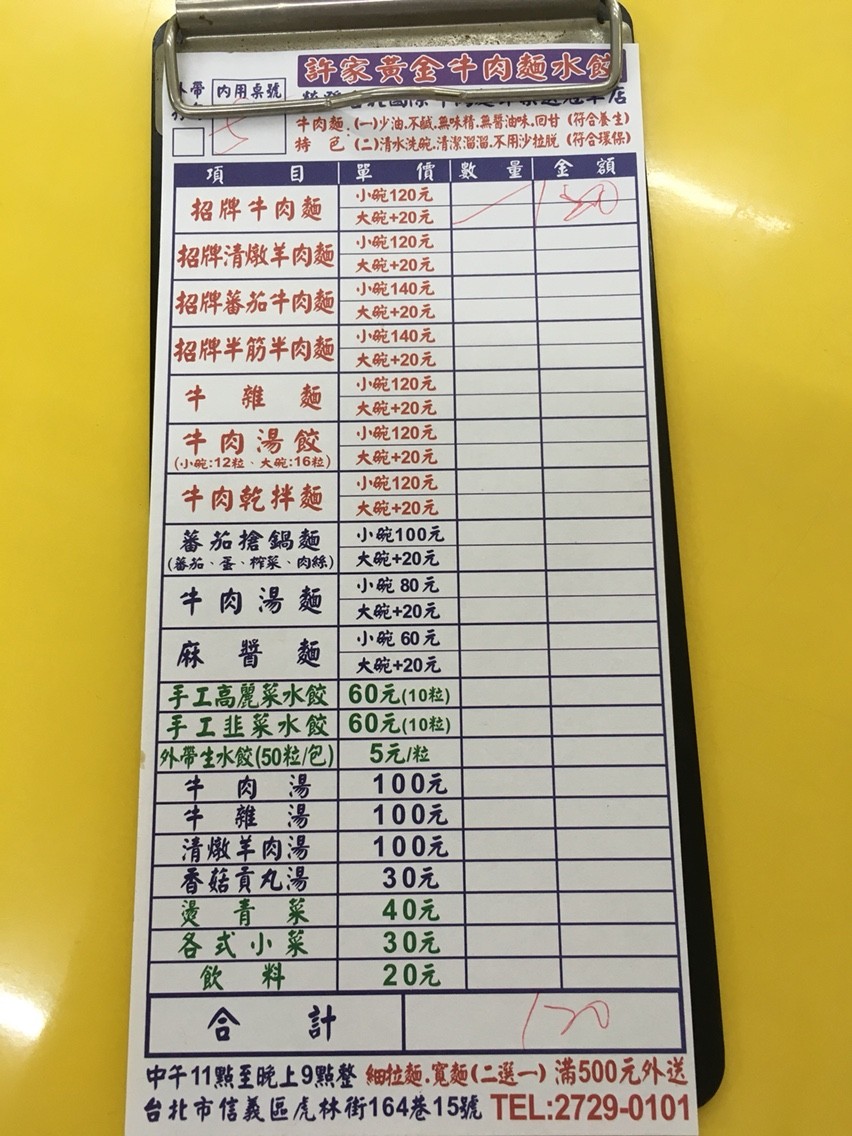 許家黃金牛肉麵水餃
外帶
內用桌號
牛肉麵 (一)少油.不鹹.無味精.無醬油味.回甘 (符合養生)
特 色 (二)清水洗碗.清潔溜溜.不用沙拉脫 (符合環保)
項 目 單 價 數 量 金 額
招牌牛肉麵 小碗120元
大碗+20元
招牌清燉羊肉麵 小碗120元
大碗+20元
招牌蕃茄牛肉麵 小碗140元
大碗+20元
招牌半筋半肉麵 小碗140元
大碗+20元
牛雜麵 小碗120元
大碗+20元
牛肉湯餃 小碗120元
(小碗:12粒、大碗:16粒) 大碗+20元
牛肉乾拌麵 小碗120元
大碗+20元
蕃茄搶鍋麵 小碗100元
(蕃茄、蛋、榨菜、肉絲) 大碗+20元
牛肉湯麵 小碗 80元
大碗+20元
麻醬麵 小碗 60元
大碗+20元
手工高麗菜水餃 60元(10粒)
手工韭菜水餃 60元(10粒)
外帶生水餃(50粒/包) 5元/粒
牛肉湯 100元
牛雜湯 100元
清燉羊肉湯 100元
香菇貢丸湯 30元
燙青菜 40元
各式小菜 30元
飲料 20元
合計 120
中午11點至晚上9點整 細拉麵.寬麵(二選一) 滿500元外送
台北市信義區虎林街164巷15號 TEL:2729-0101